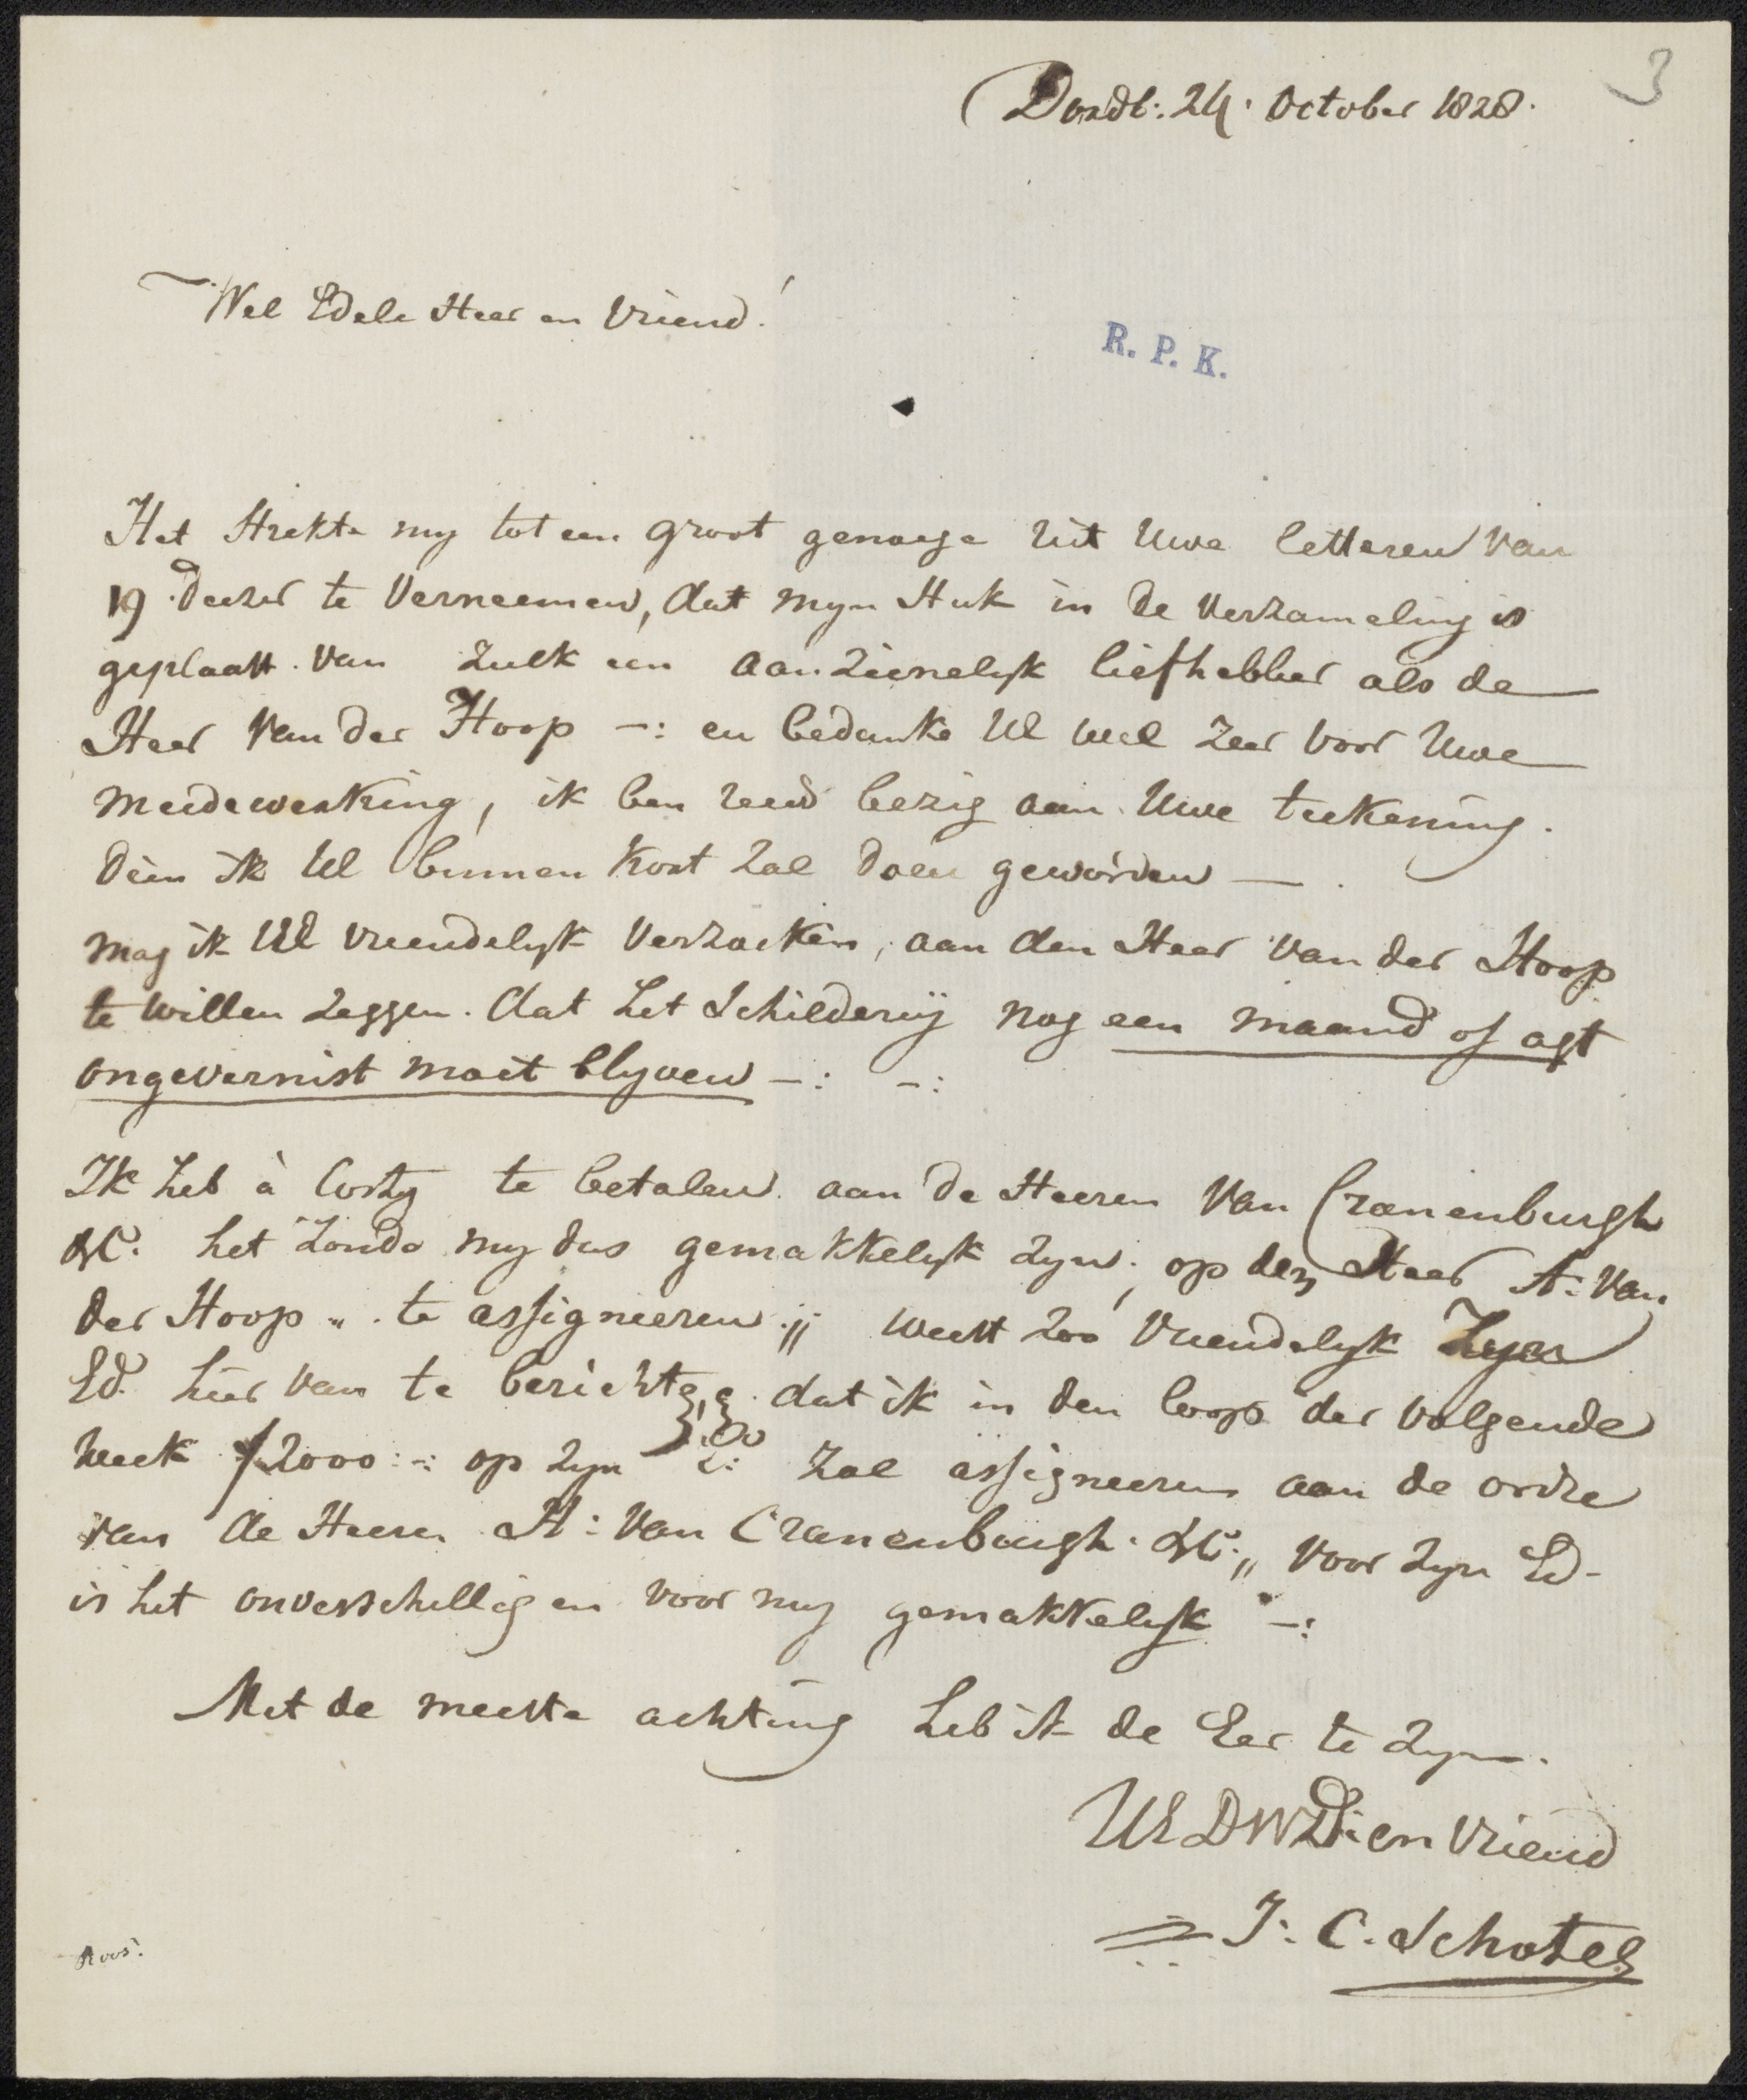 3
Dordt: 24. October 1828.
Wel Edele Heer en Vriend!
R. P. K.
Het strekte my tot een groot genoege uit Uwe letteren van
19 deezer te verneemen, dat myn stuk in de verzameling is
geplaatst. van zulk een aanzienelyk liefhebber als de
Heer van der Hoop -: en bedanke UE wel zeer voor Uwe
meedewerking, ik ben reeds bezig aan Uwe teekening.
dien ik UE binnen kort zal doen geworden —.
mag ik UE vriendelyk verzoeken, aan den Heer van der Hoop
te willen zeggen. dat het schildery nog een maand of agt
ongevernist moet blyven -: -:
Ik heb à Costy te betalen aan de Heeren van Cranenburgh
&C: het zoude my dus gemakkelyk zyn; op den Heer A: van
der Hoop „. te assigneeren ;; weest zoo vriendelyk Zyn
Ed. hier van te berichte, dat ik in den loop der volgende
week ƒ2000:-: op zyn Ed: zal assigneeren aan de ordre
van de Heeren H: van Cranenburgh. &C:„ voor zyn Ed-
is het onverschillig en voor my gemakkelyk -:
Met de meeste achting heb ik de Eer te zyn.
UE DWD: en Vriend
J: C. Schotel
Roos.